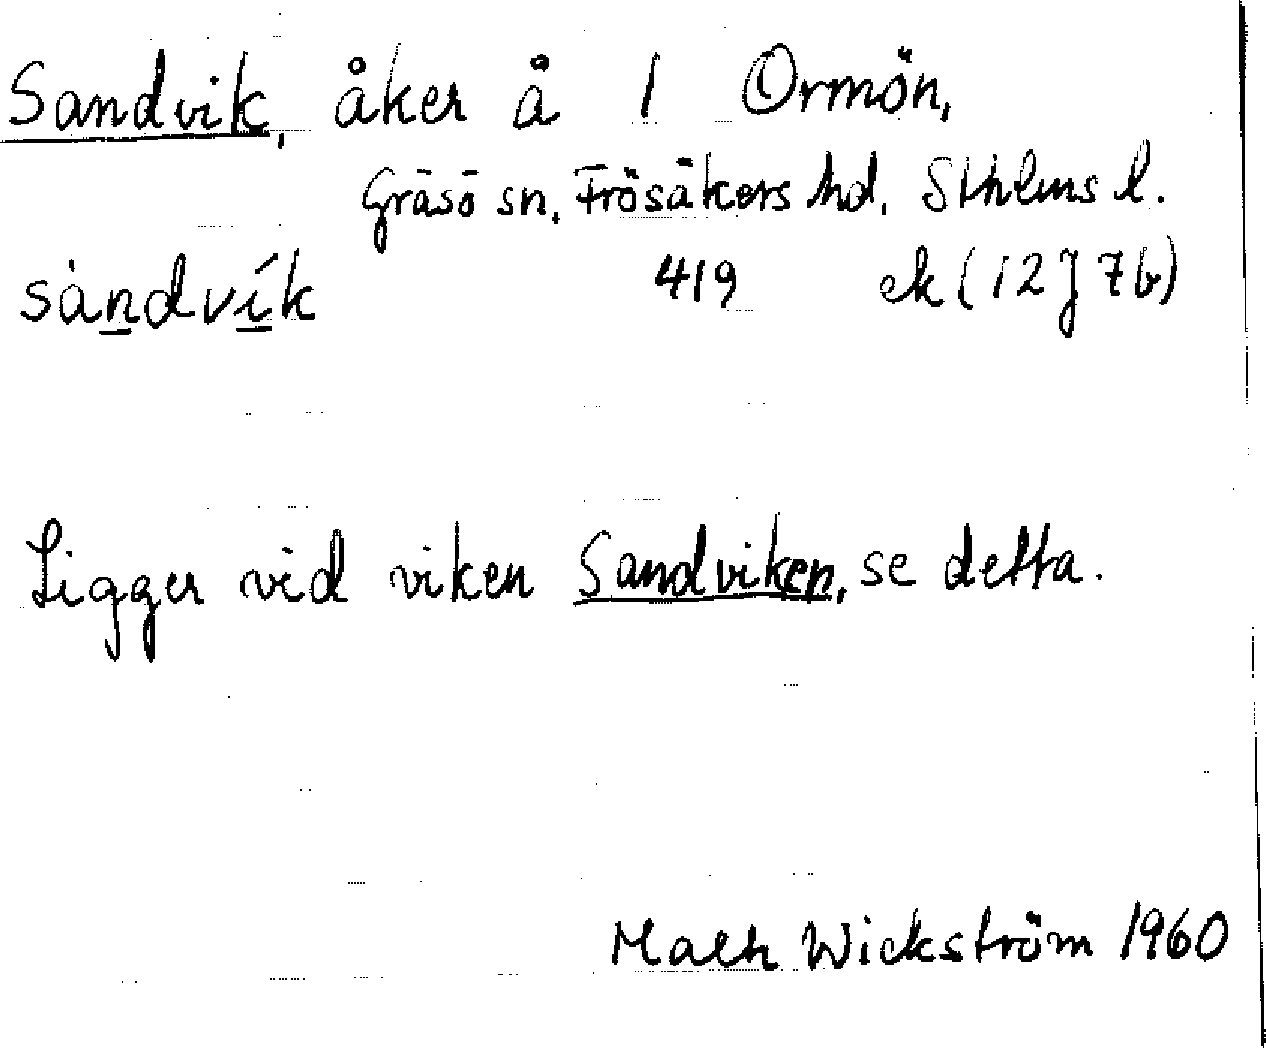 Sandvik, åker å 1 Ormön,
Gräsö sn, Frösåkers hd, Sthlms l.
sàndvík 419 ek (12J 7b)
Ligger vid viken Sandviken, se detta.
Wickström 1960